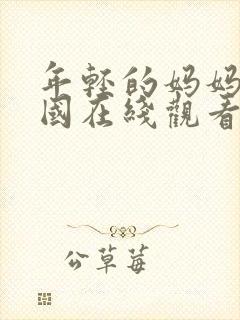 年轻的妈妈
國在綫觀看
公草莓